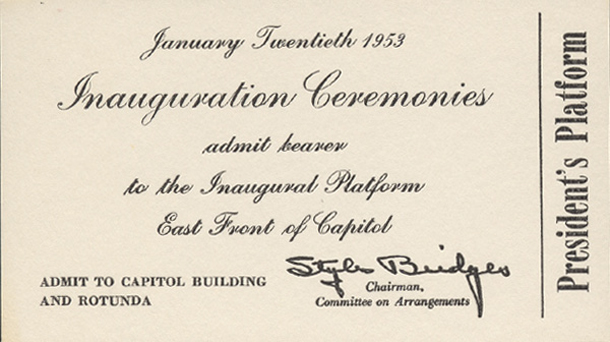 January Twentieth 1953
Inauguration Ceremonies
admit bearer
to the Inaugural Platform
East Front of Capitol
ADMIT TO CAPITOL BUILDING
AND ROTUNDA
Styles Bridges
Chairman,
Committee on Arrangements
President's Platform